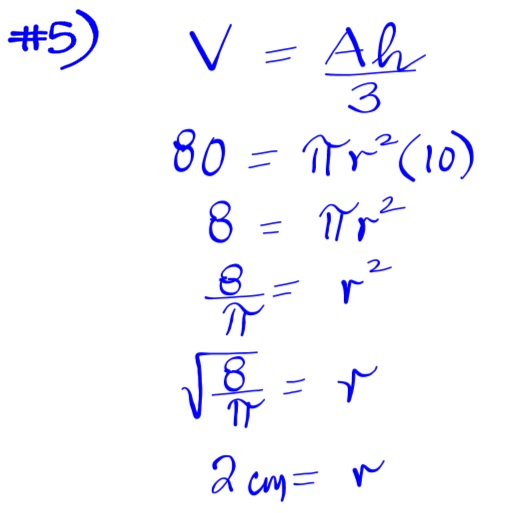 #5) V = Ah/3
80 = πr²(10)
8 = πr²
8/π = r²
√(8/π) = r
2 cm = r